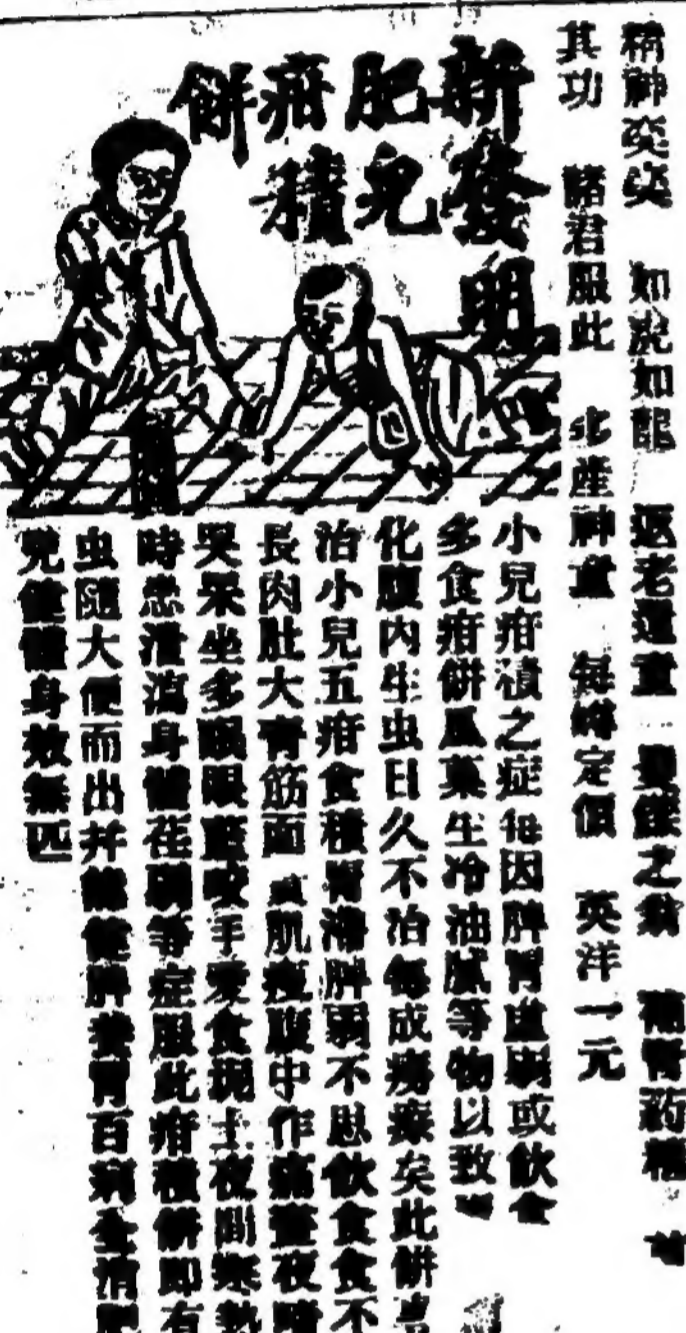 精神奕奕 如虎如龍 返老還童 補腎葯
其功 諸君服此 產神童 每 定價 英洋一元
新發明
肥兒
疳積
餅
小兒疳積之症每因脾胃虛弱或飲食
多食疳餅瓜菓生冷油膩等物以致
化腹內生虫日久不治每成癆瘵矣此餅
治小兒五疳食積胃滯脾弱不思飲食食不
長肉肚大青筋面 肌瘦腹中作痛晝夜啼
哭呆坐多 眼 咬手愛食坭土夜間 熱
時患泄瀉身體 弱等症服此疳積餅即有
虫隨大便而出并能健脾養胃百病全消肥
兒健體身效無匹